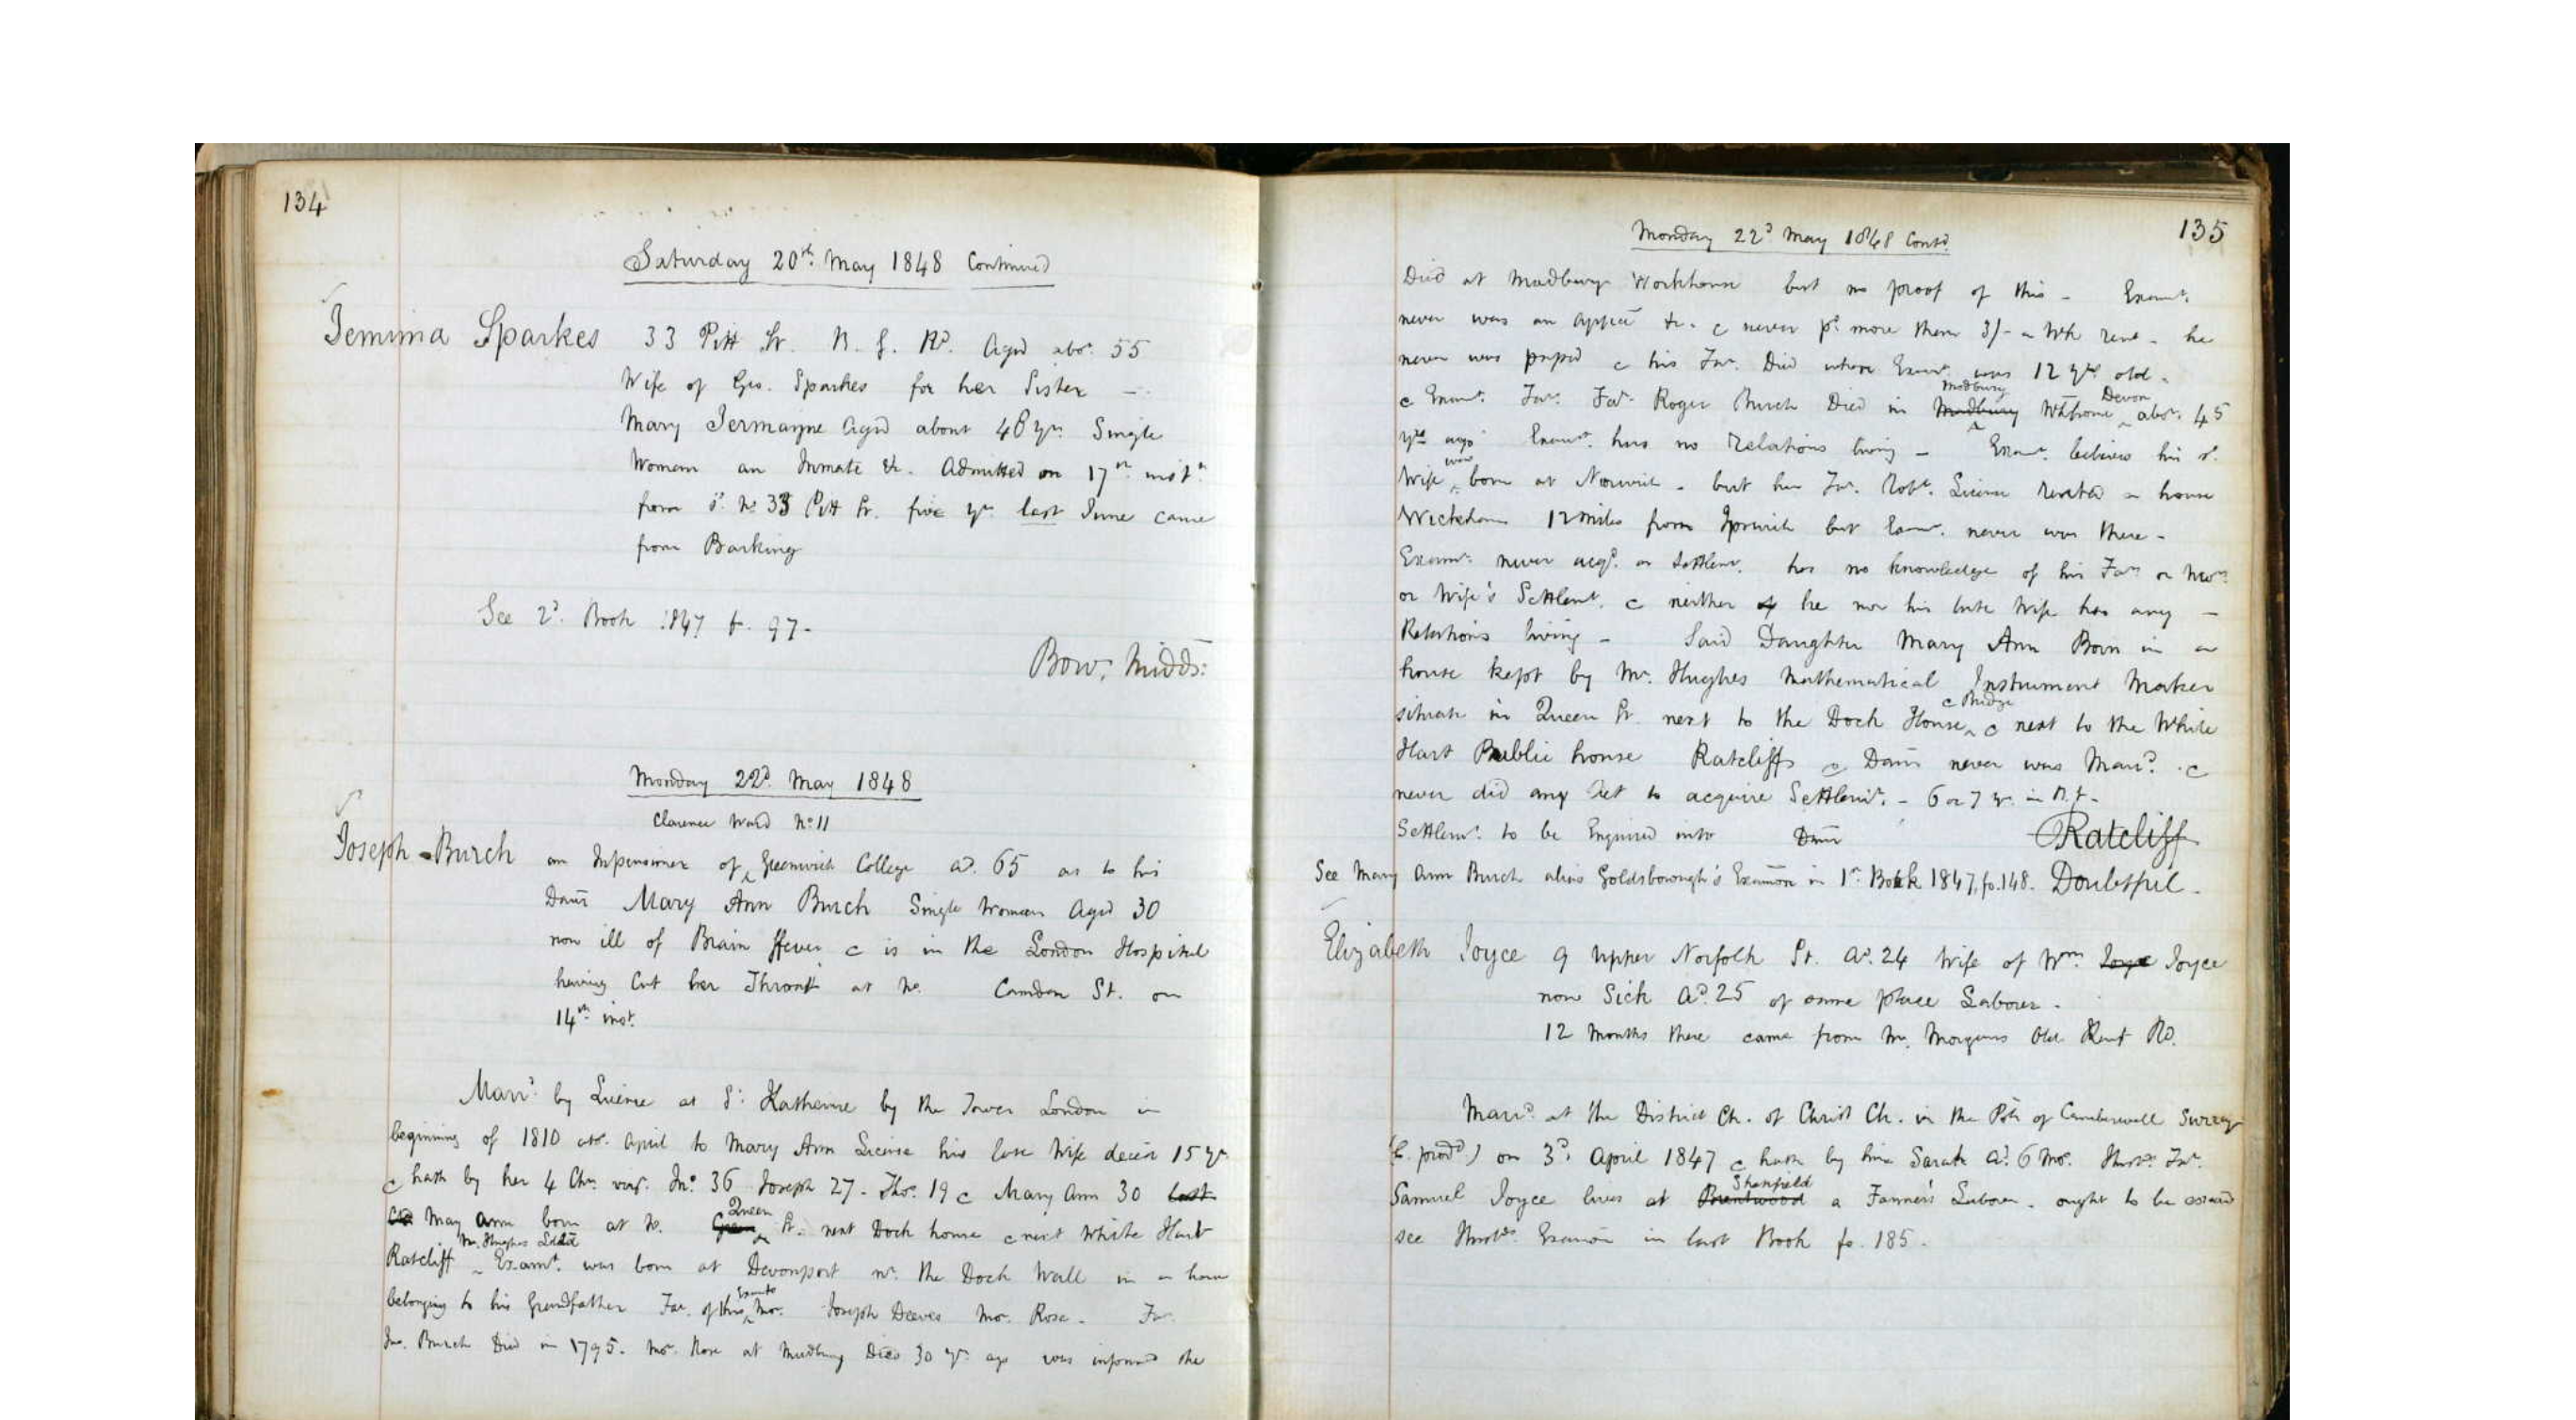 134
Saturday 20th. May 1848 Continued
Jemima Sparkes 33 Pitt St. Aged abt. 55
Wife of Geo. Sparkes for her Sister —
Mary Jermayne Aged about 48 yrs. Single
Woman an Inmate &c. Admitted on 17th inst.
from sd. No 33 Pitt St. five yrs. last June came
from Barking
See 2d. Book 1847 fo. 97.
Bow, Midds:
Monday 22d. May 1848
Clarence Ward No. 11
Joseph Burch an Inpensioner of Greenwich College ad. 65 as to his
Daur Mary Ann Burch Single Woman Aged 30
now ill of Brain ffever & is in the London Hospital
having Cut her Throat at No. Camden St. on
14th inst.
Marrd. by License at St. Katherine by the Tower London in
beginning of 1810 abt. April to Mary Ann License his late Wife decd 15 yrs
& hath by her 4 Chn. vizt. Jno. 36 Joseph 27. Thos. 19 & Mary Ann 30 last
May Ann born at No. Green Queen St. next Dock house & next White Hart
Ratcliff Mr. Hughes Examt. was born at Devonport nr. the Dock Wall in a house
belonging to his Grandfather Far. of this Exam'ts Mor. Joseph Deeves Mor. Rose. Far.
Jno. Burch Died in 1795. Mor. Rose at Modbury Died 30 yrs ago was informed she
135
Monday 22d. May 1848 Contd
Died at Modbury Workhouse but no proof of this — Examt.
never was an appce &c. & never pd. more than 3/- a Wk rent. he
never was & his Far. Died when Examt. was 12 yrs old.
& Examt. Far. Far. Roger Burch Died in Madbury Modbury Wkhouse Devon abt. 45
yrs ago Examt. has no Relations living — Examt. believes his sd.
Wife was born at Norwich. but her Far. Robt. License rented a house
Wickham 12 miles from Ipswich but Examt. never was there —
Examt. never acqd. a Settlemt. has no knowledge of his Fars or Mors
or Wife's Settlemt. & neither of he nor his late Wife has any —
Relations living — Said Daughter Mary Ann Born in a
house kept by Mr. Hughes Mathematical Instrument Maker
situate in Queen St. next to the Dock House & Bridge & next to the White
Hart Public house Ratcliff & Daur never was Marrd. &
never did any Act to acquire Settlemt. — 6 or 7 yr. in
Settlemt. to be Enquired into Daur Ratcliff
See Mary Ann Burch alias Goldsborough's Examon in 1st. Book 1847. fo. 148. Doubtful.
Elizabeth Joyce 9 Upper Norfolk St. ad. 24 Wife of Wm. Joyce Joyce
now Sick ad. 25 of same place Labourer.
12 Months there came from Mr. Morgans Old Kent Rd.
Marrd. at the District Ch. of Christ Ch. in the Psh of Camberwell Surrey
(C. prodd) on 3d. April 1847 & hath by him Sarah ad. 6 Mos. Husbs. Far.
Samuel Joyce lives at Brentwood Shenfield a Farmers Labourer. ought to be
see Husbds. Examon in last Book fo. 185.